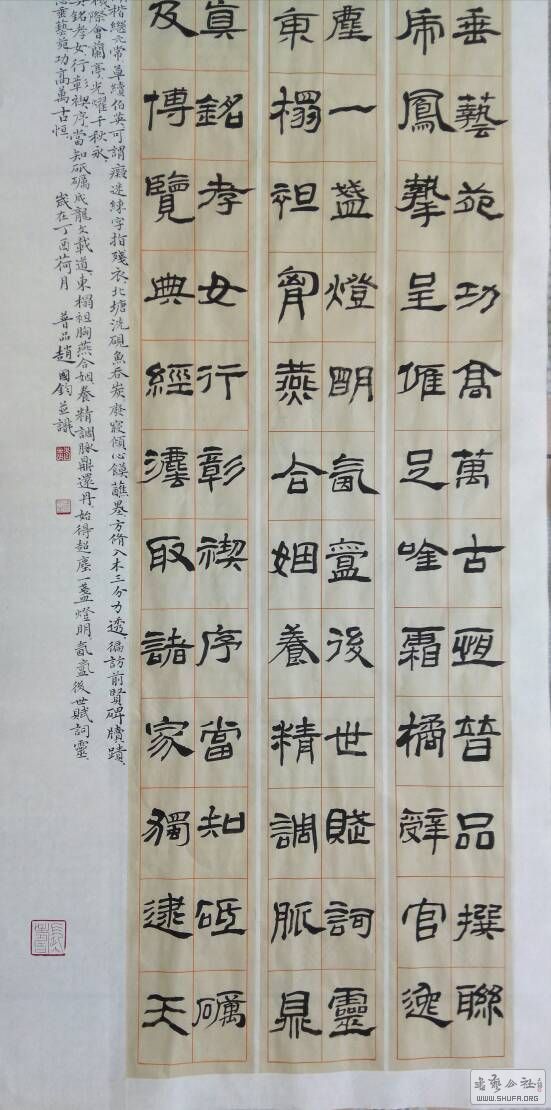 垂藝苑功高萬古恆普品撰聯
鳳摯呈雄足唫霜橘辭官逸
塵一盞燈明氤氳後世賦詞靈
東榻袒胷燕合姻養精調脈鼎
真銘孝女行彰禊序當知砥礪
及博覽典經灋取諸家獨逮天
楷繼元常草續伯英可謂癡迷練字指殘衣北塘洗硯魚吞炭廢寢傾心饃蘸墨方脩入木三分力透徧訪前賢碑牘蹟
機際會蘭亭光耀千秋永
銘孝女行彰禊序當知砥礪成龍文載道東榻袒胸燕合姻養精調脈鼎還丹始得超塵一盞燈明氤氳後世賦詞靈
垂藝苑功高萬古恆
歲在丁酉荷月 普品趙國鈞並識
書藝公社
WWW.SHUFA.ORG